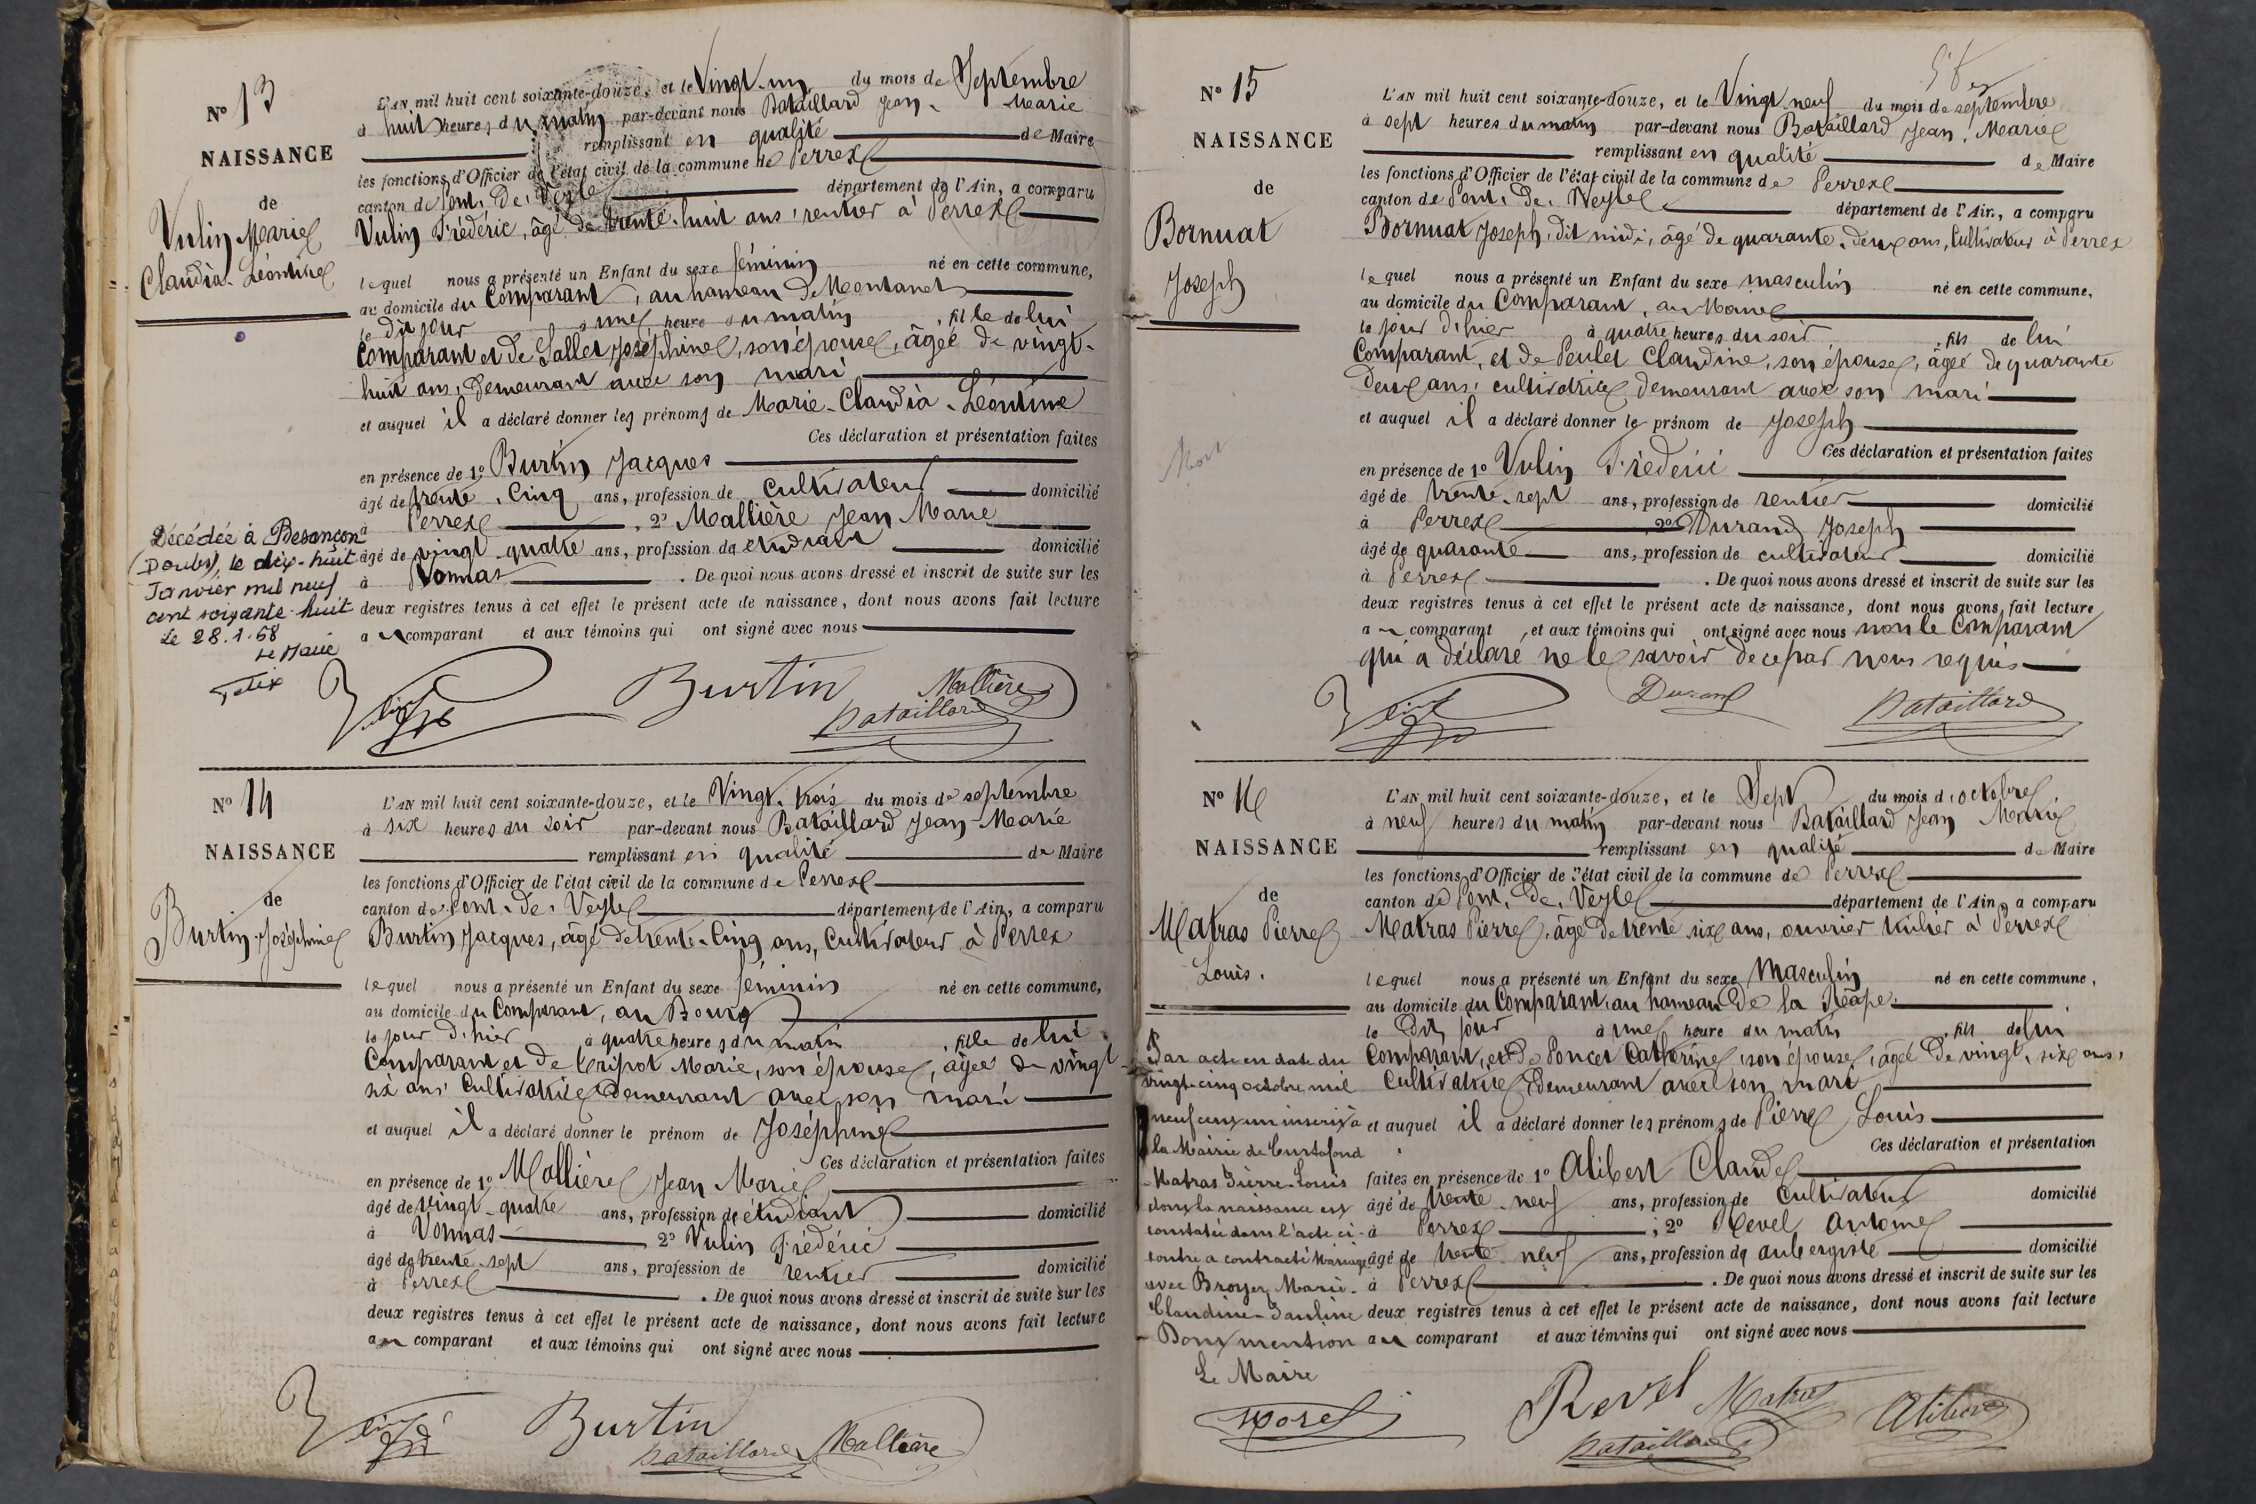 N° 13
NAISSANCE
de
Vulin Marie
Claudia Léontine
L'AN mil huit cent soixante-douze, et le Vingt-un du mois de Septembre
à huit heures du matin par-devant nous Bataillard Jean-Marie
remplissant en qualité de Maire
les fonctions d'Officier de l'état civil de la commune de Perrex
canton de Pont-De-Veyle département de l'Ain, a comparu
Vulin Frédéric, âgé de trente-huit ans, rentier à Perrex
lequel nous a présenté un Enfant du sexe féminin né en cette commune,
au domicile du Comparant, au hameau De Montanet
le dit jour à une heure du matin, fille de lui
Comparant et de Sallet Joséphine, son épouse, âgée de vingt-
huit ans, Demeurant avec son mari
et auquel il a déclaré donner les prénoms de Marie-Claudia-Léontine
Ces déclaration et présentation faites
en présence de 1° Burtin Jacques
âgé de trente-Cinq ans, profession de Cultivateur domicilié
à Perrex, 2° Mallière Jean Marie
âgé de vingt-quatre ans, profession de étudiant domicilié
à Vonnas. De quoi nous avons dressé et inscrit de suite sur les
deux registres tenus à cet effet le présent acte de naissance, dont nous avons fait lecture
au comparant et aux témoins qui ont signé avec nous
Décédée à Besançon
(Doubs), le dix-huit
Janvier mil neuf
cent soixante-huit
Le 28.1.68
Le Maire
Burtin Mallière
Bataillard
N° 14
NAISSANCE
de
Burtin Joséphine
L'AN mil huit cent soixante-douze, et le Vingt-trois du mois de septembre
à six heures du soir par-devant nous Bataillard Jean-Marie
remplissant en qualité de Maire
les fonctions d'Officier de l'état civil de la commune de Perrex
canton de Pont-de-Veyle département de l'Ain, a comparu
Burtin Jacques, âgé de trente-Cinq ans, Cultivateur à Perrex
lequel nous a présenté un Enfant du sexe féminin né en cette commune,
au domicile du Comparant, au Bourg
le jour d'hier à quatre heures du matin, fille de lui
Comparant et de Cripot Marie, son épouse, âgée de vingt
six ans, Cultivatrice Demeurant avec son mari
et auquel il a déclaré donner le prénom de Joséphine
Ces déclaration et présentation faites
en présence de 1° Mallière Jean Marie
âgé de vingt-quatre ans, profession de étudiant domicilié
à Vonnas 2° Vulin Frédéric
âgé de trente-sept ans, profession de rentier domicilié
à Perrex. De quoi nous avons dressé et inscrit de suite sur les
deux registres tenus à cet effet le présent acte de naissance, dont nous avons fait lecture
au comparant et aux témoins qui ont signé avec nous
Burtin
Bataillard Mallière
N° 15
NAISSANCE
de
Bornuat
Joseph
Mort
L'AN mil huit cent soixante-douze, et le Vingt neuf du mois de septembre
à sept heures du matin par-devant nous Bataillard Jean-Marie
remplissant en qualité de Maire
les fonctions d'Officier de l'état civil de la commune de Perrex
canton de Pont-De-Veyle département de l'Ain, a comparu
Bornuat Joseph, dit midi, âgé de quarante-deux ans, Cultivateur à Perrex
lequel nous a présenté un Enfant du sexe masculin né en cette commune,
au domicile du Comparant, au
le jour d'hier à quatre heures du soir, fils de lui
Comparant, et de Peulet Claudine, son épouse, âgée de quarante
Deux ans, cultivatrice demeurant avec son mari
et auquel il a déclaré donner le prénom de Joseph
Ces déclaration et présentation faites
en présence de 1° Vulin Frédéric
âgé de trente-sept ans, profession de rentier domicilié
à Perrex 2° Durand Joseph
âgé de quarante ans, profession de cultivateur domicilié
à Perrex. De quoi nous avons dressé et inscrit de suite sur les
deux registres tenus à cet effet le présent acte de naissance, dont nous avons fait lecture
au comparant, et aux témoins qui ont signé avec nous non le Comparant
qui a déclaré ne le savoir de ce par nous requis
Durand Bataillard
N° 16
NAISSANCE
de
Matras Pierre
Louis.
L'AN mil huit cent soixante-douze, et le Sept du mois d'octobre
à neuf heures du matin par-devant nous Bataillard Jean Marie
remplissant en qualité de Maire
les fonctions d'Officier de l'état civil de la commune de Perrex
canton de Pont-De-Veyle département de l'Ain, a comparu
Matras Pierre, âgé De trente six ans, ouvrier tuilier à Perrex
lequel nous a présenté un Enfant du sexe Masculin né en cette commune,
au domicile du Comparant, au hameau De la
le Dit jour à une heure du matin, fils de lui
Comparant, et de Poncet Catherine, son épouse, âgée De vingt-six ans,
Cultivatrice Demeurant avec son mari
et auquel il a déclaré donner les prénoms de Pierre Louis
Ces déclaration et présentation
faites en présence de 1° Alibert Claude
âgé de trente-neuf ans, profession de Cultivateur domicilié
à Perrex; 2° Revel Antoine
âgé de trente-neuf ans, profession de aubergiste domicilié
à Perrex. De quoi nous avons dressé et inscrit de suite sur les
deux registres tenus à cet effet le présent acte de naissance, dont nous avons fait lecture
au comparant et aux témoins qui ont signé avec nous
Par acte en date du
vingt-cinq octobre mil
neuf cent un inscrit à
la Mairie de Curtafond
Matras Pierre-Louis
dont la naissance est
constatée dans l'acte ci-
contre a contracté Mariage
avec Broyer Marie-
Claudine-Pauline
Dont mention
Le Maire
Morel
Revel Matras Alibert
Bataillard